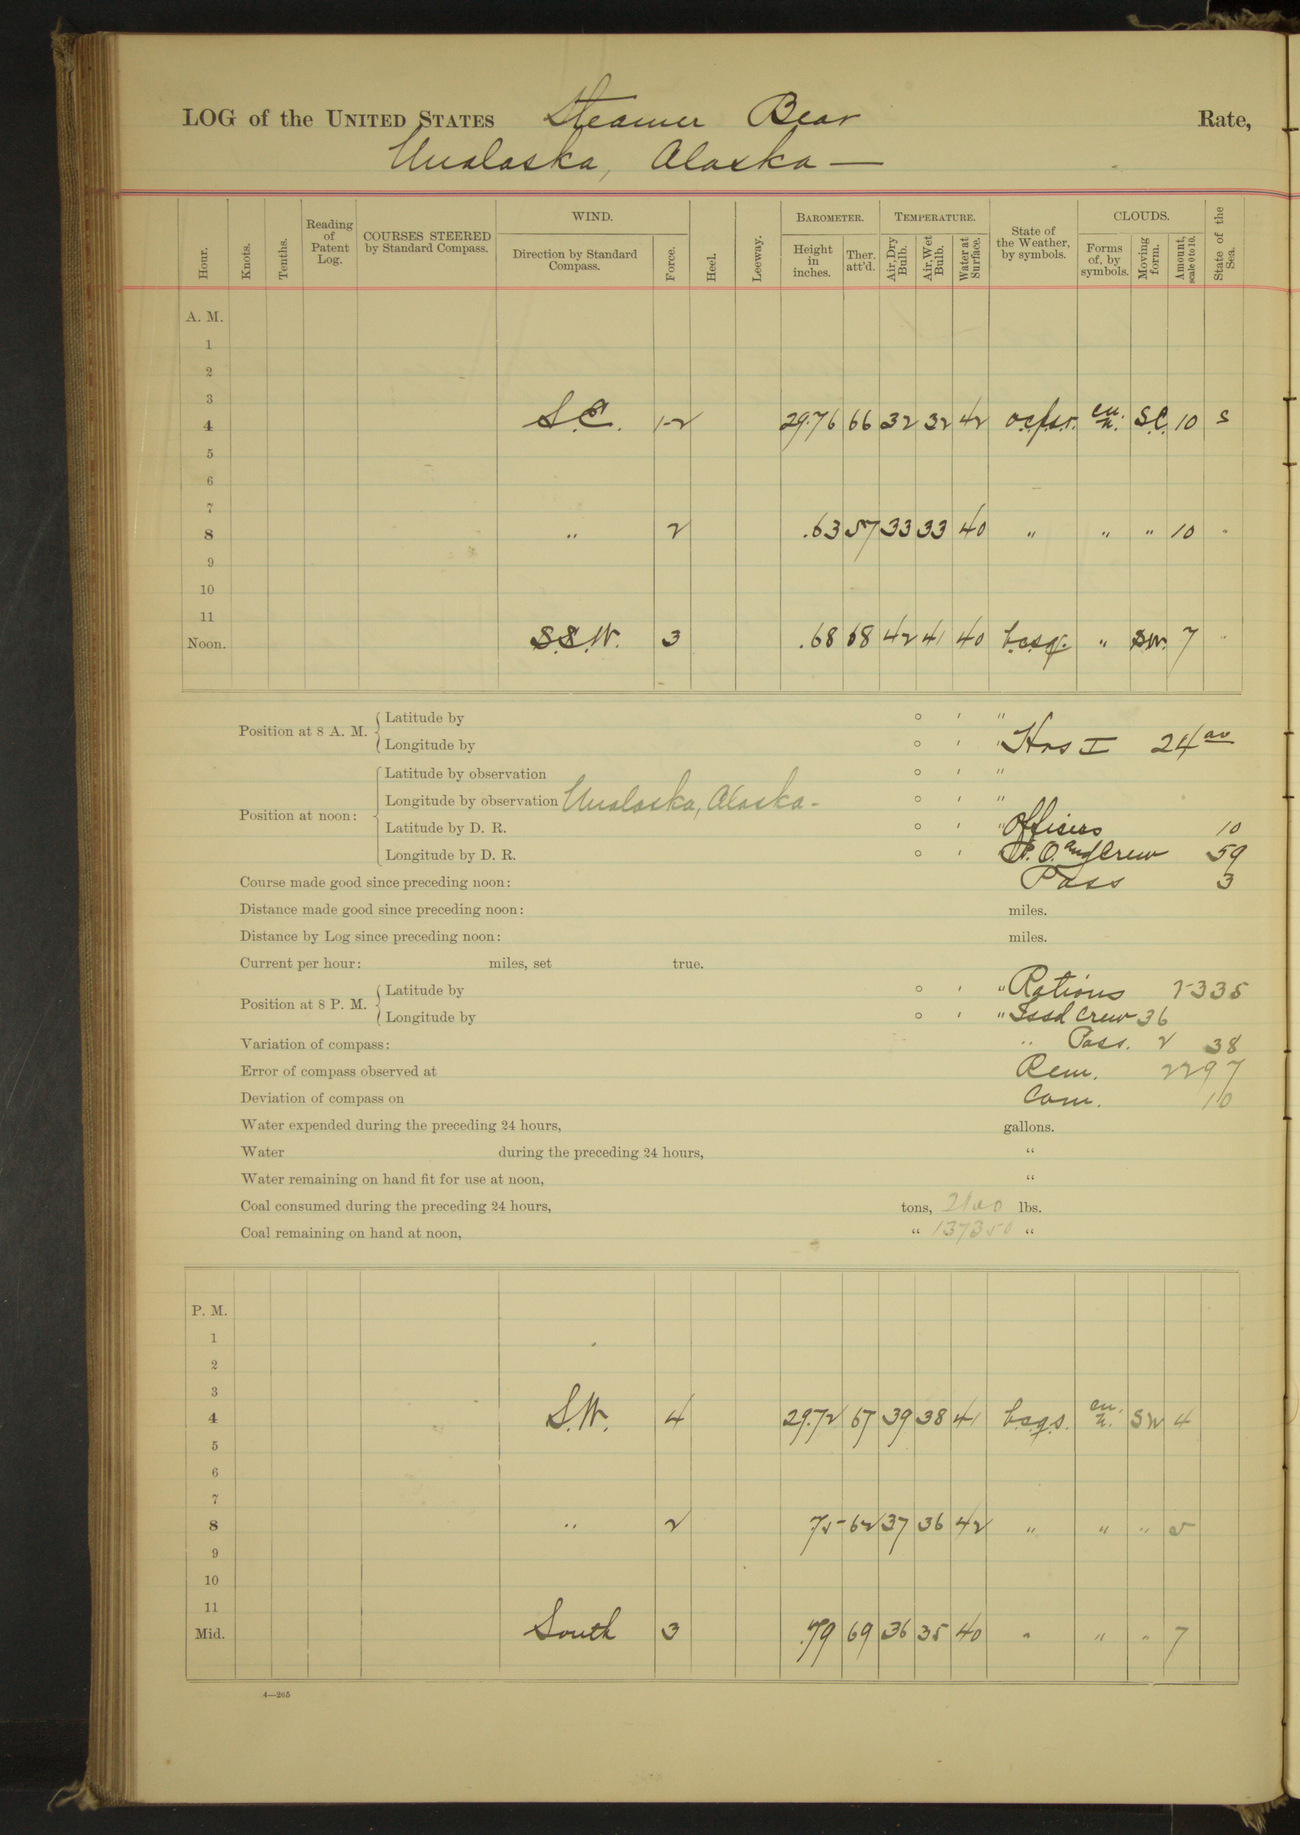 LOG of the UNITED STATES Steamer Bear Rate,
Unalaska, Alaska —
Hour. Knots. Tenths. Reading of Patent Log. COURSES STEERED by Standard Compass. WIND. Direction by Standard Compass. Force. Heel. Leeway. BAROMETER. Height in inches. Ther. att'd. TEMPERATURE. Air, Dry Bulb. Air, Wet Bulb. Water at Surface. State of the Weather, by symbols. CLOUDS. Forms of, by symbols. Moving form. Amount, scale 0 to 10. State of the Sea.
A. M.
1
2
3
4 S.E. 1-2 29.76 66 32 32 42 o.c.f.s.r. cu. n. S.E. 10 S
5
6
7
8 " 2 .63 57 33 33 40 " " " 10 "
9
10
11
Noon. S.S.W. 3 .68 68 42 41 40 b.c.s.q. " S.W. 7 "
Position at 8 A. M. Latitude by ° ' "
Longitude by ° ' " Hos I 24 av
Position at noon: Latitude by observation ° ' "
Longitude by observation Unalaska, Alaska - ° ' "
Latitude by D. R. ° ' " Officers 10
Longitude by D. R. ° ' " P. O. and Crew 59
Course made good since preceding noon: Pass 3
Distance made good since preceding noon: miles.
Distance by Log since preceding noon: miles.
Current per hour: miles, set true.
Position at 8 P. M. Latitude by ° ' " Rations 2335
Longitude by ° ' " Issd Crew 36
Variation of compass: " Pass. 2 38
Error of compass observed at Rem. 2297
Deviation of compass on Com. 10
Water expended during the preceding 24 hours, gallons.
Water during the preceding 24 hours, "
Water remaining on hand fit for use at noon, "
Coal consumed during the preceding 24 hours, tons, 2100 lbs.
Coal remaining on hand at noon, " 137350 "
P. M.
1
2
3
4 S.W. 4 29.72 67 39 38 41 b.c.q.s. cu. n. SW 4
5
6
7
8 " 2 .75 62 37 36 42 " " " 5
9
10
11
Mid. South 3 .79 69 36 35 40 " " " 7
4—265